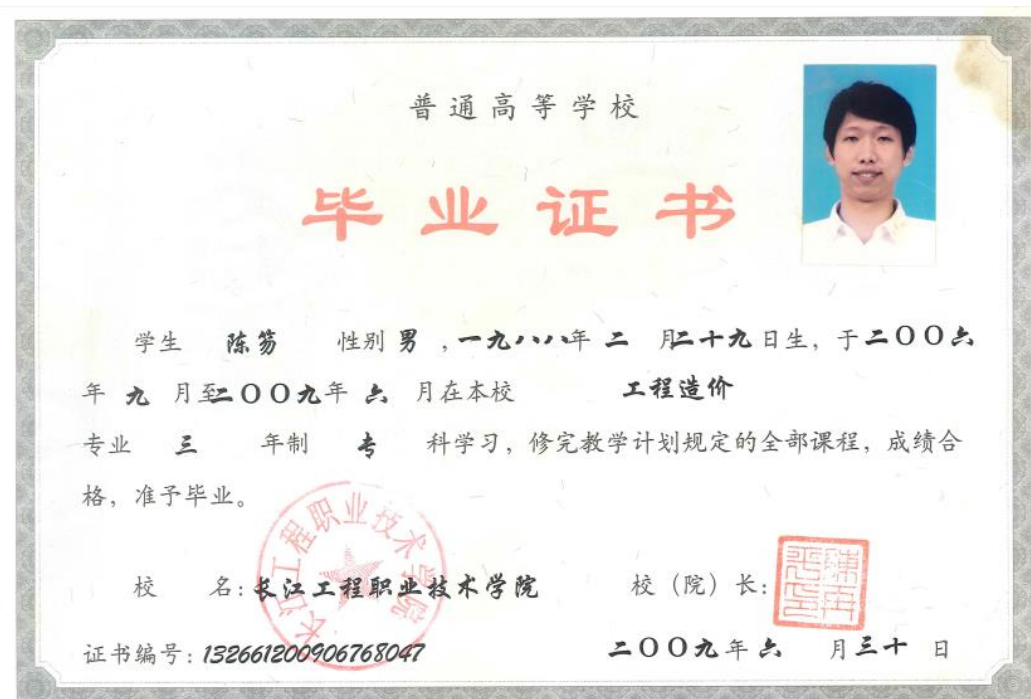 普通高等学校
毕业证书
学生 陈笏 性别 男 ,一九八八年 二 月二十九日生，于二〇〇六
年 九 月至二〇〇九年 六 月在本校 工程造价
专业 三 年制 专 科学习，修完教学计划规定的全部课程，成绩合
格，准予毕业。
长江工程职业技术学院
校 名: 长江工程职业技术学院 校（院）长:
证书编号: 132661200906768047 二〇〇九年 六 月三十 日